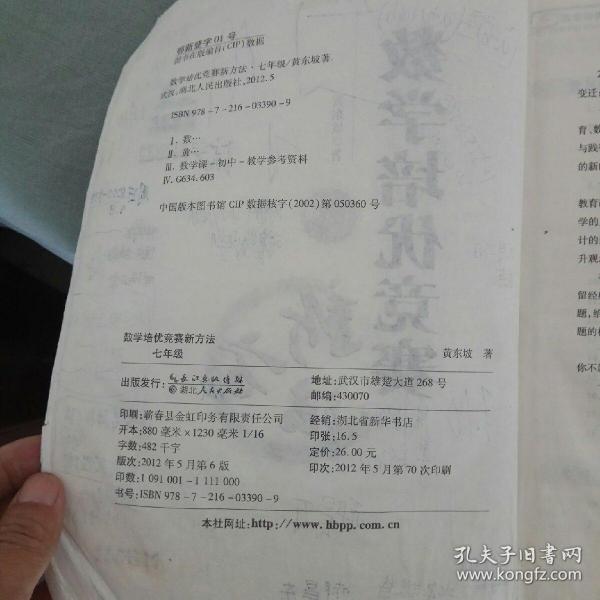 鄂新登字01号
图书在版编目(CIP)数据
数学培优竞赛新方法·七年级/黄东坡著.
武汉:湖北人民出版社,2012.5
ISBN 978-7-216-03390-9
Ⅰ. 数…
Ⅱ. 黄…
Ⅲ. 数学课-初中-教学参考资料
Ⅳ. G634.603
中国版本图书馆CIP数据核字(2002)第050360号
数学培优竞赛新方法
七年级
黄东坡 著
出版发行:
湖北人民出版社
地址:武汉市雄楚大道268号
邮编:430070
印刷:蕲春县金虹印务有限责任公司
经销:湖北省新华书店
开本:880毫米×1230毫米1/16
印张:16.5
字数:482千字
定价:26.00元
版次:2012年5月第6版
印次:2012年5月第70次印刷
印数:1 091 001-1 111 000
书号:ISBN 978-7-216-03390-9
本社网址:http://www.hbpp.com.cn
变迁
育、数
与践
的新
教育
学的
计的
升观
留经
题,给
题的
你不
孔夫子旧书网
www.kongfz.com